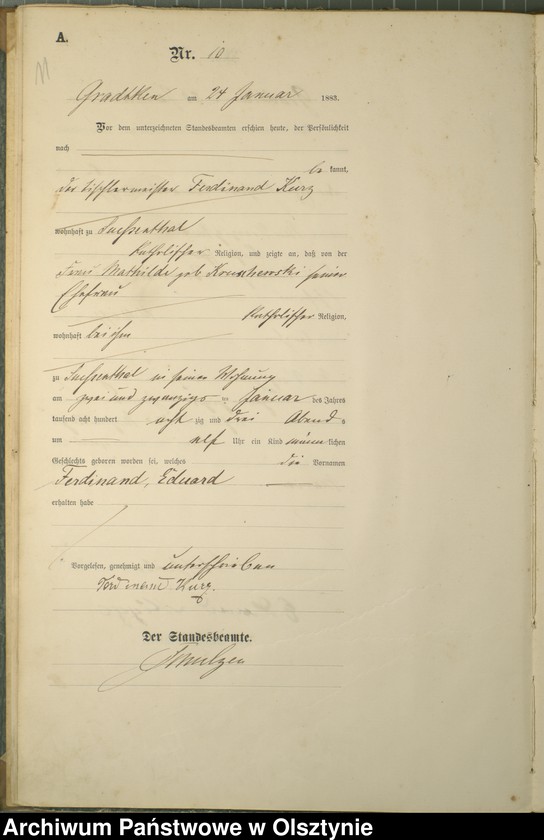 A.
Nr. 10
Gradtken am 24 Januar 1883.
Vor dem unterzeichneten Standesbeamten erschien heute, der Persönlichkeit
nach
be kannt,
der Tischlermeister Ferdinand Kurz
wohnhaft zu
katholischer Religion, und zeigte an, daß von der
Frau Mathilde geb. seiner
Ehefrau
katholischer Religion,
wohnhaft bei ihm
zu in seiner Wohnung
am zwei und zwanzigs ten Januar des Jahres
tausend acht hundert acht zig und drei Abend s
um elf Uhr ein Kind männ lichen
Geschlechts geboren worden sei, welches die Vornamen
Ferdinand, Eduard
erhalten habe
Vorgelesen, genehmigt und unterschrieben
Ferdinand Kurz.
Der Standesbeamte.
Archiwum Państwowe w Olsztynie